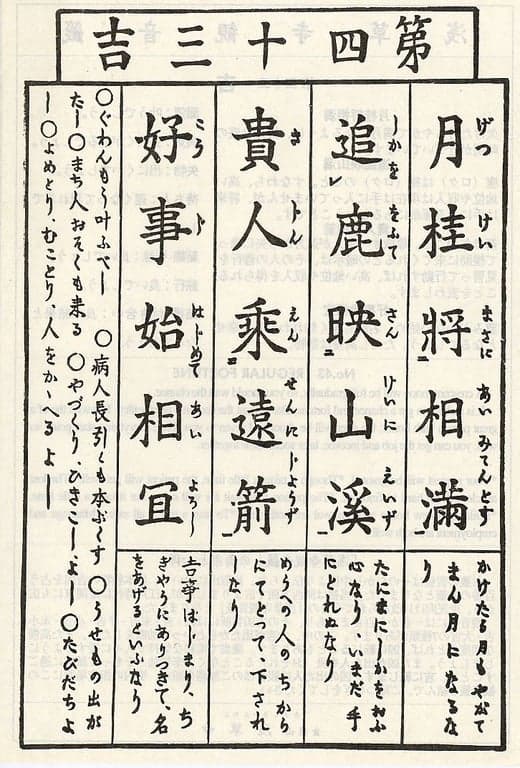 第四十三吉
げつけいまさにあいみてんとす
月桂將ニ相滿
かけたる月もやがて
まん月になるな
り
しかををふてさんけいにえいず
追レ鹿映山溪ニ
たにまにしかをおふ
心なり、いまだ手
にとれぬなり
きじんえんせんにじようず
貴人乘ニ遠箭一
めうへの人のちから
にてとつて、下され
しなり
こうじはじめてあいよろし
好事始相宜
吉事はじまり、ち
ぎやうにありつきて、名
をあげるといふなり
○ぐわんもう叶ふべし ○病人長引くも本ぶくす ○うせもの出が
たし ○まち人おそくも来る ○やづくり、ひきこし、よし ○たびだちよ
し ○よめとり、むことり、人をかゝへるよし